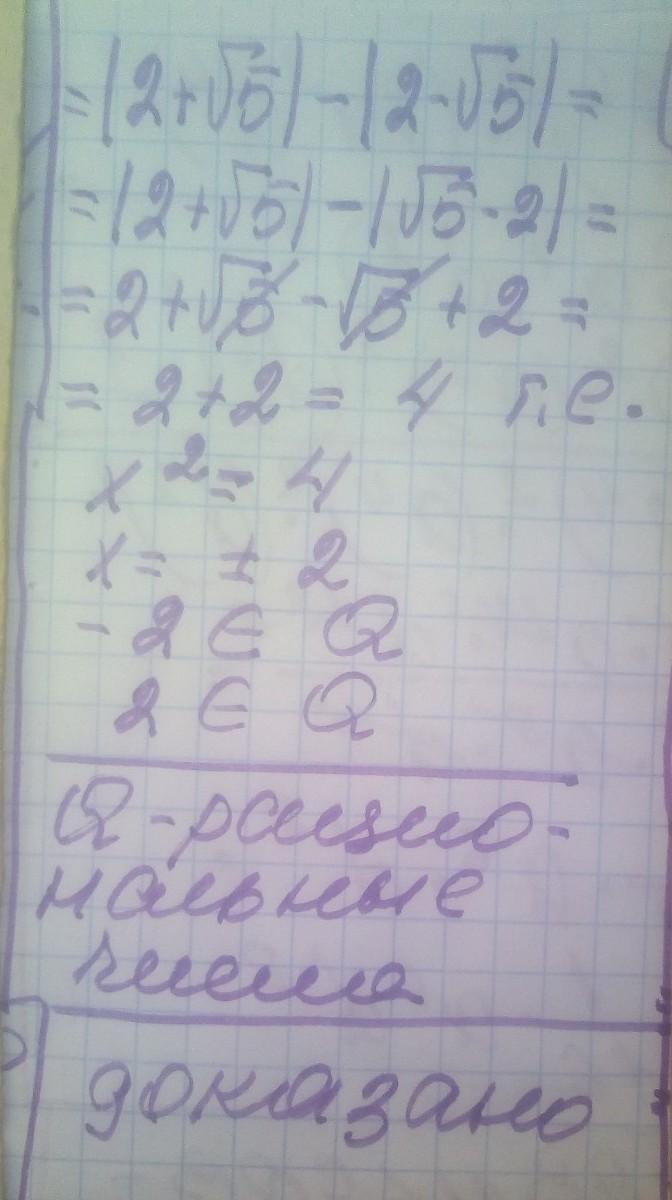 = |2+√5| - |2-√5| =
= |2+√5| - |√5-2| =
= 2+√5 - √5 + 2 =
= 2+2 = 4 т.е.
x² = 4
x = ± 2
-2 ∈ Q
2 ∈ Q
Q - рацио-
нальные
числа
доказано